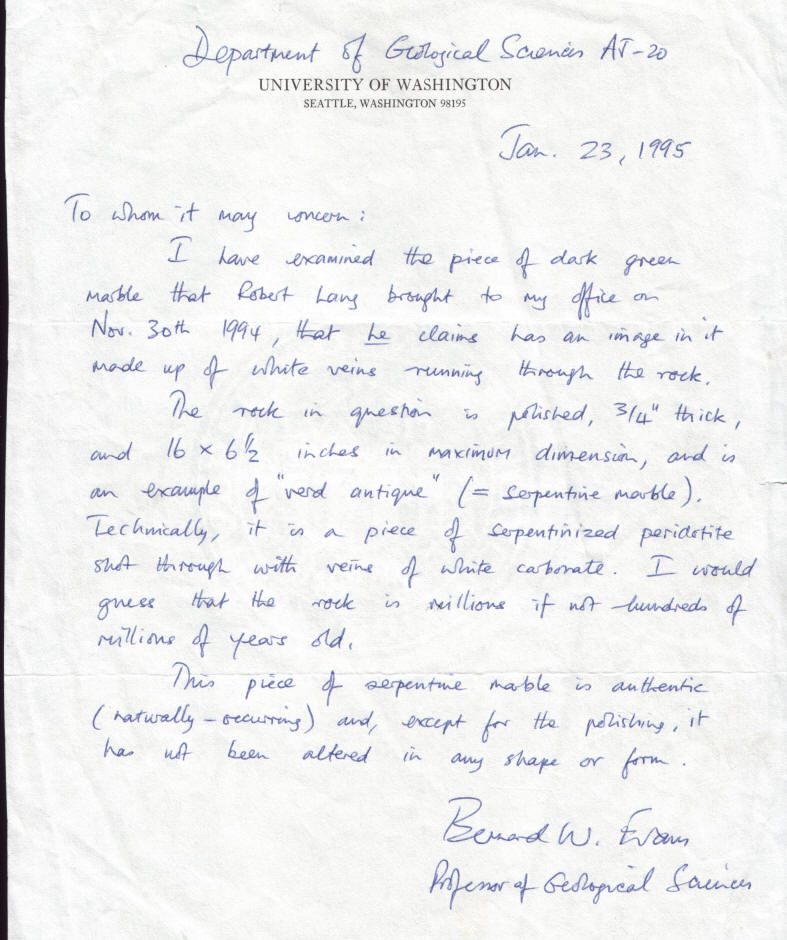 Department of Geological Sciences AJ-20
UNIVERSITY OF WASHINGTON
SEATTLE, WASHINGTON 98195
Jan. 23, 1995
To whom it may concern:
I have examined the piece of dark green
marble that Robert Lang brought to my office on
Nov. 30th 1994, that he claims has an image in it
made up of white veins running through the rock.
The rock in question is polished, 3/4" thick,
and 16 x 6 1/2 inches in maximum dimension, and is
an example of "verd antique" (= serpentine marble).
Technically, it is a piece of serpentinized peridotite
shot through with veins of white carbonate. I would
guess that the rock is millions if not hundreds of
millions of years old.
This piece of serpentine marble is authentic
(naturally-occurring) and, except for the polishing, it
has not been altered in any shape or form.
Bernard W. Evans
Professor of Geological Sciences